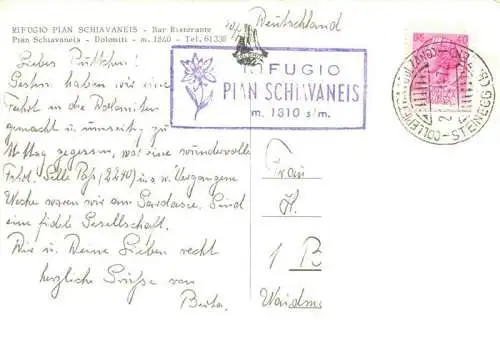 RIFUGIO PIAN SCHIAVANEIS - Bar Ristorante
Pian Schiavaneis - Dolomiti - m. 1840 - Tel. 61338
Liebes
Gestern haben wir eine
Fahrt in die Dolomiten
gemacht u. hier zu
Mittag gegessen, war eine wundervolle
Fahrt. Sella Pass (2240) u.s.w. Vergangene
Woche waren wir am Gardasee. Sind
eine fidele Gesellschaft.
Wir u. Deine Lieben recht
herzliche Grüsse von
Berta.
Deutschland
RIFUGIO
PIAN SCHIAVANEIS
m. 1810 s/m.
COLLEPIETRA - STEINEGG
Frau
H.
1 B
Waidm